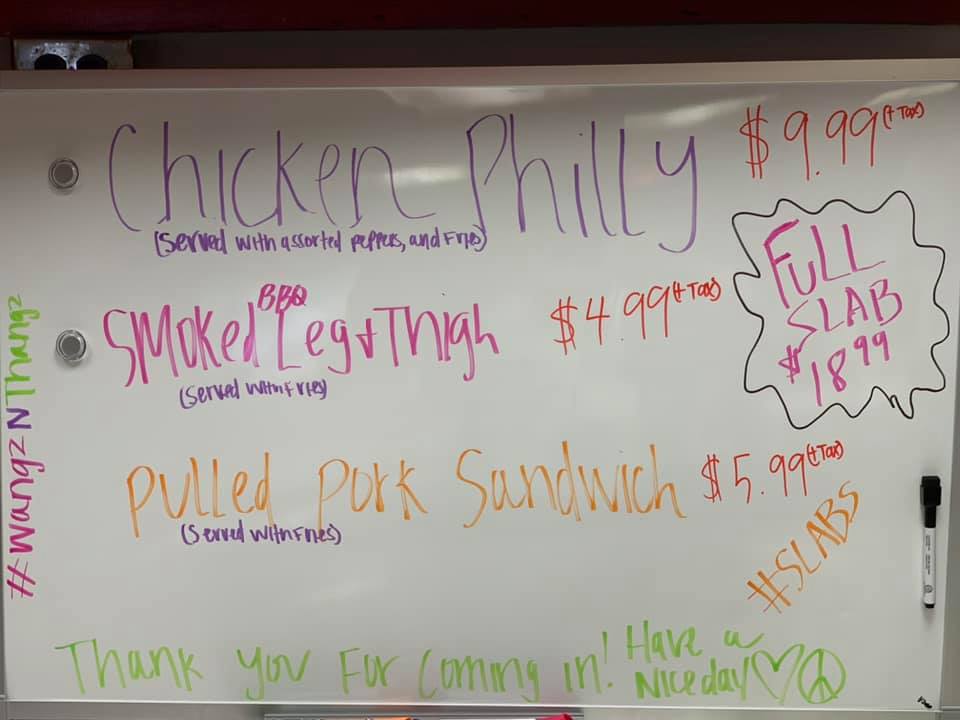 Chicken Philly $9.99 (+ Tax)
(Served with assorted peppers, and Fries)
FULL
SLAB
$18.99
Smoked BBQ Leg + Thigh $4.99 (+ Tax)
(Served with Fries)
Pulled Pork Sandwich $5.99 (+ Tax)
(Served with Fries)
#SLABS
#WangzNThangz
Thank you For Coming in! Have a
Nice day